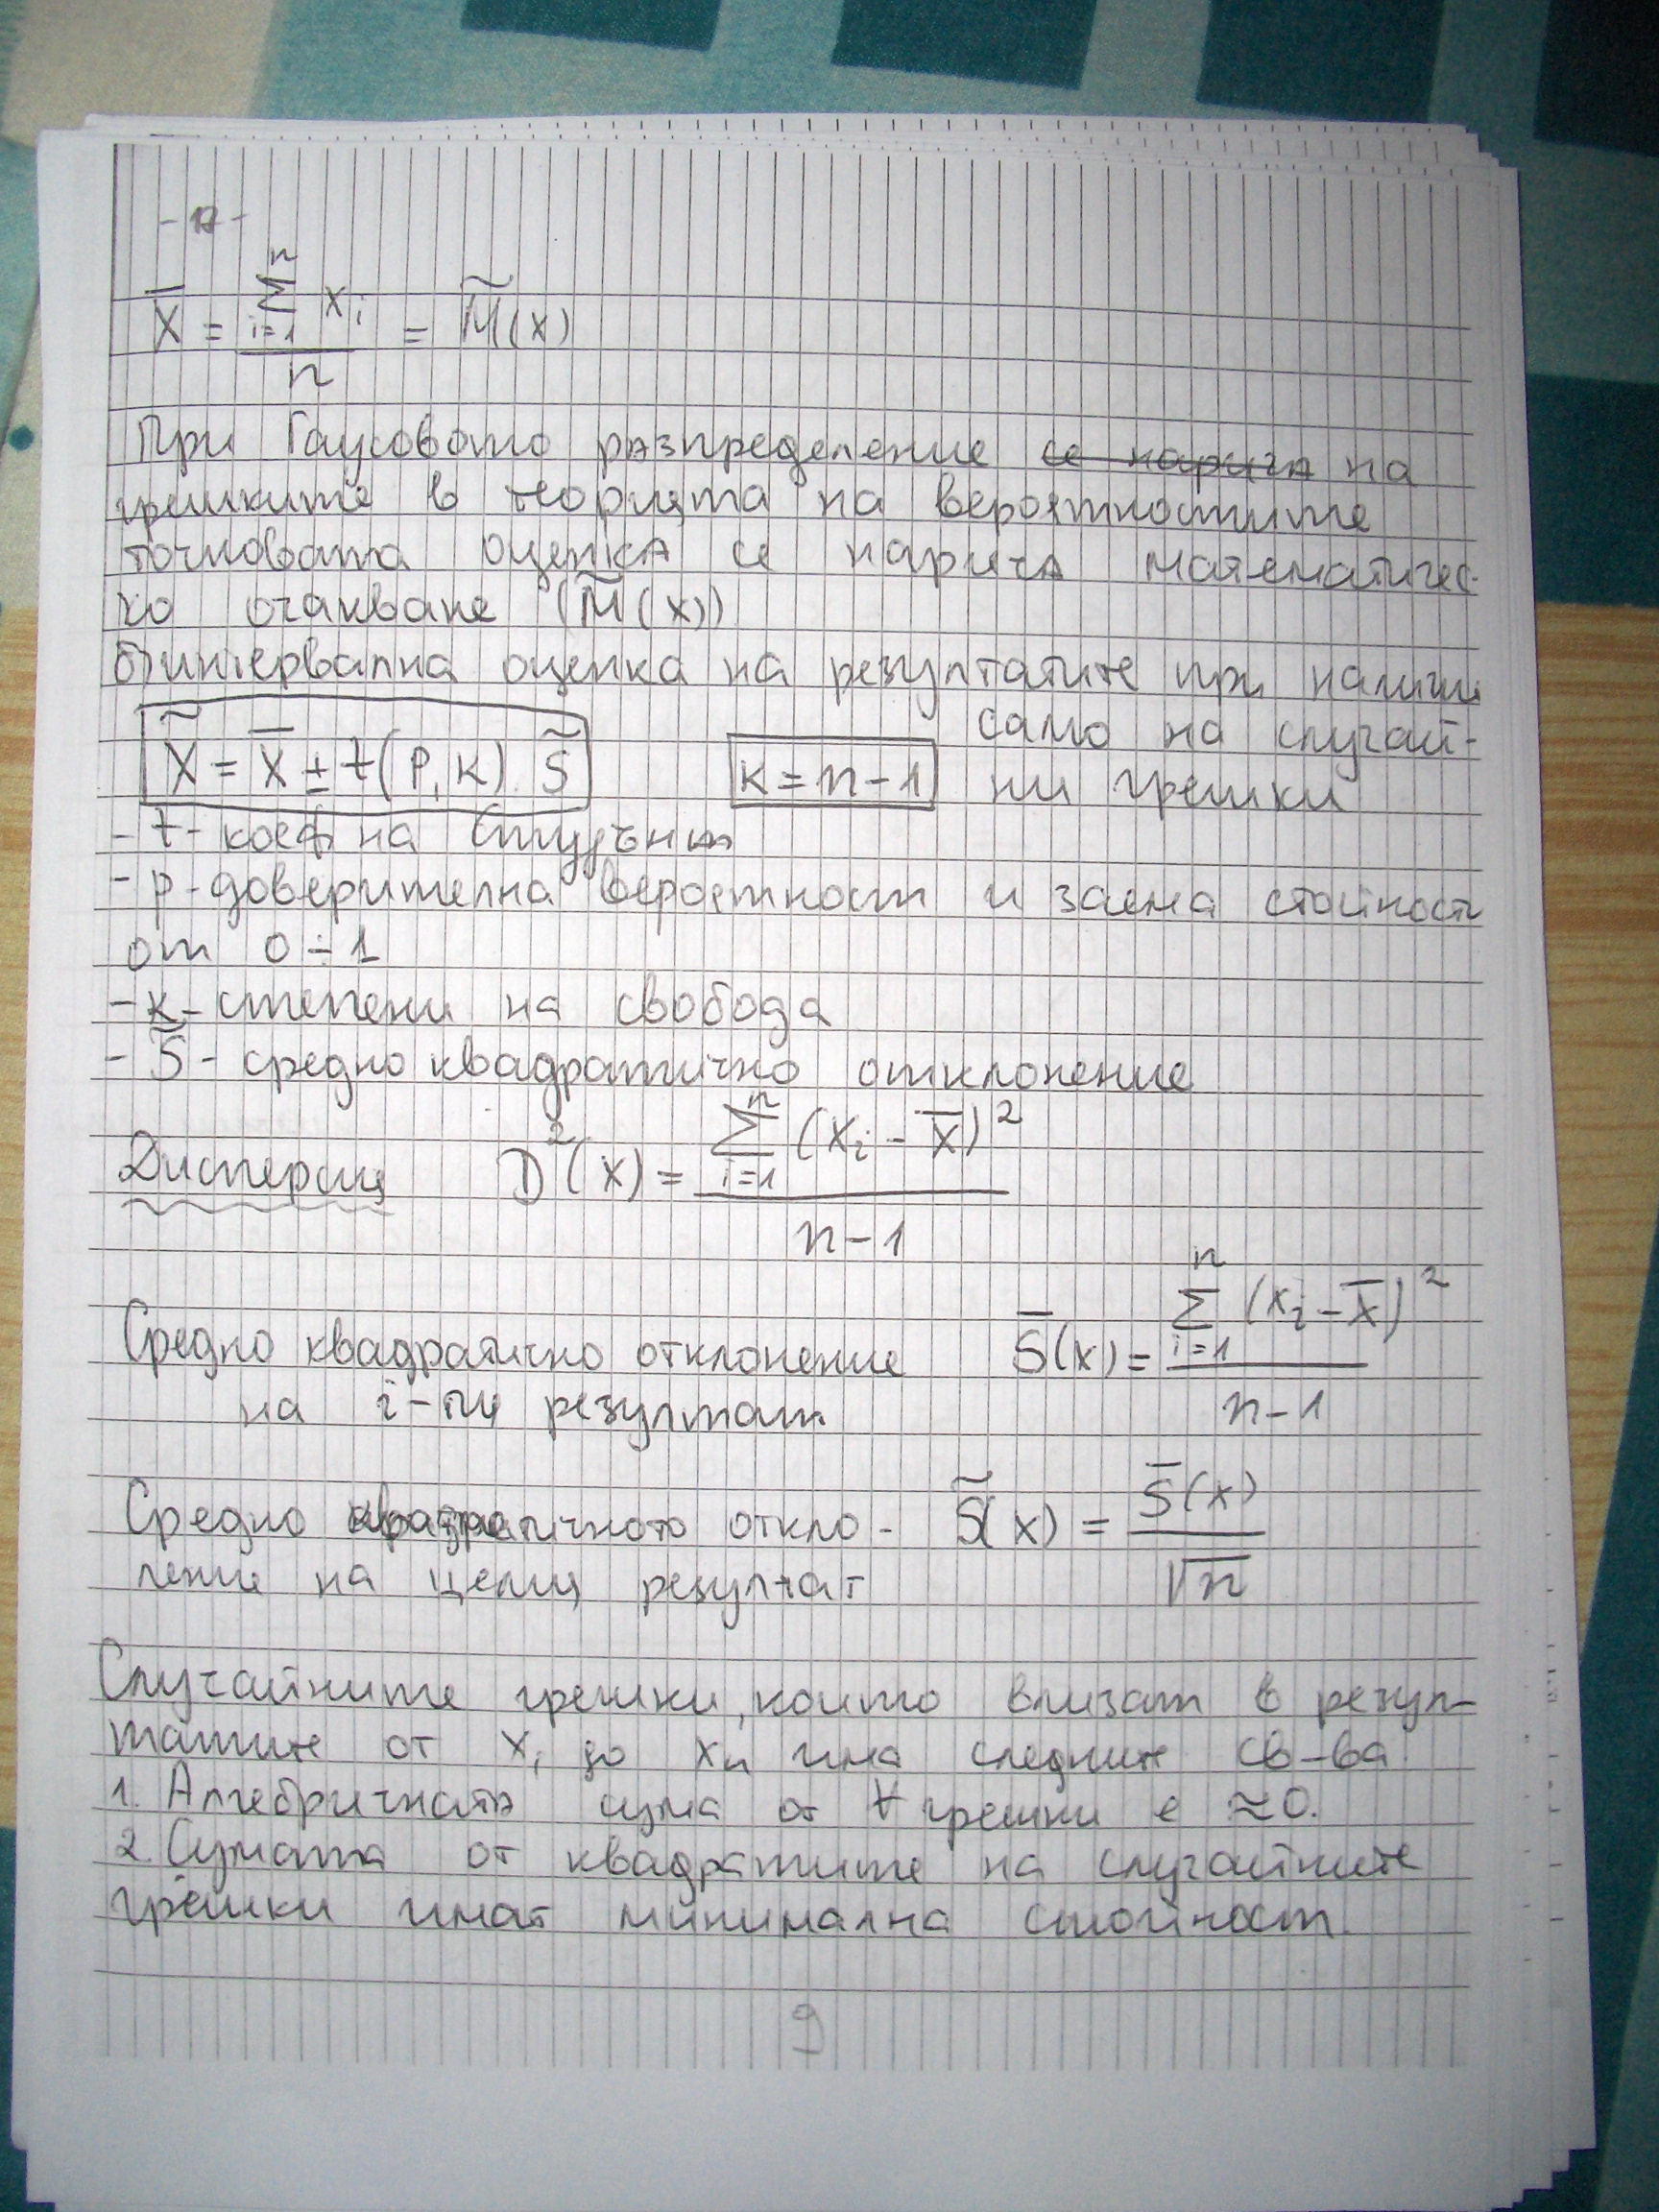 - 17 -
X̄ = Σⁿᵢ₌₁ xᵢ / n = M̃(x)
При Гаусовото разпределение се нарича на
грешките в теорията на вероятностите
точковата оценка се нарича математичес-
ко очакване (M̃(x))
б) интервална оценка на резултатите при наличии
само на случай-
X̃ = X̄ ± t(P, K). S̃ K = n - 1 ни грешки
- t - коеф на Студънт
- p - доверителна вероятност и заема стойност
от 0 ÷ 1
- к - степени на свобода
- S̃ - средно квадратично отклонение
Дисперсия D²(x) = Σⁿᵢ₌₁ (xᵢ - x̄)² / n - 1
Средно квадратично отклонение S̄(x) = Σⁿᵢ₌₁ (xᵢ - x̄)² / n - 1
на i - тия резултат
Средно квадратичното откло - S̃(x) = S̄(x) / √n
нение на целия резултат
Случайните грешки, които влизат в резул-
татите от x₁ до xₙ има следните св-ва
1. Алгебричната сума от ∀ грешки е ≈ 0.
2. Сумата от квадратите на случайните
грешки имат минимална стойност.
9